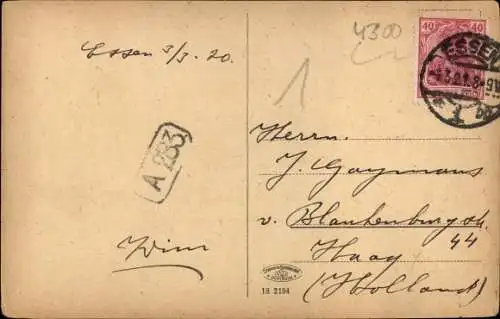 Essen 3/3. 20.
4300
40 40
ESSEN
A 283
Herrn.
J. Gaymans
v. Blankenburgstr.
44
Haag
(Holland)
Wim
18 2194